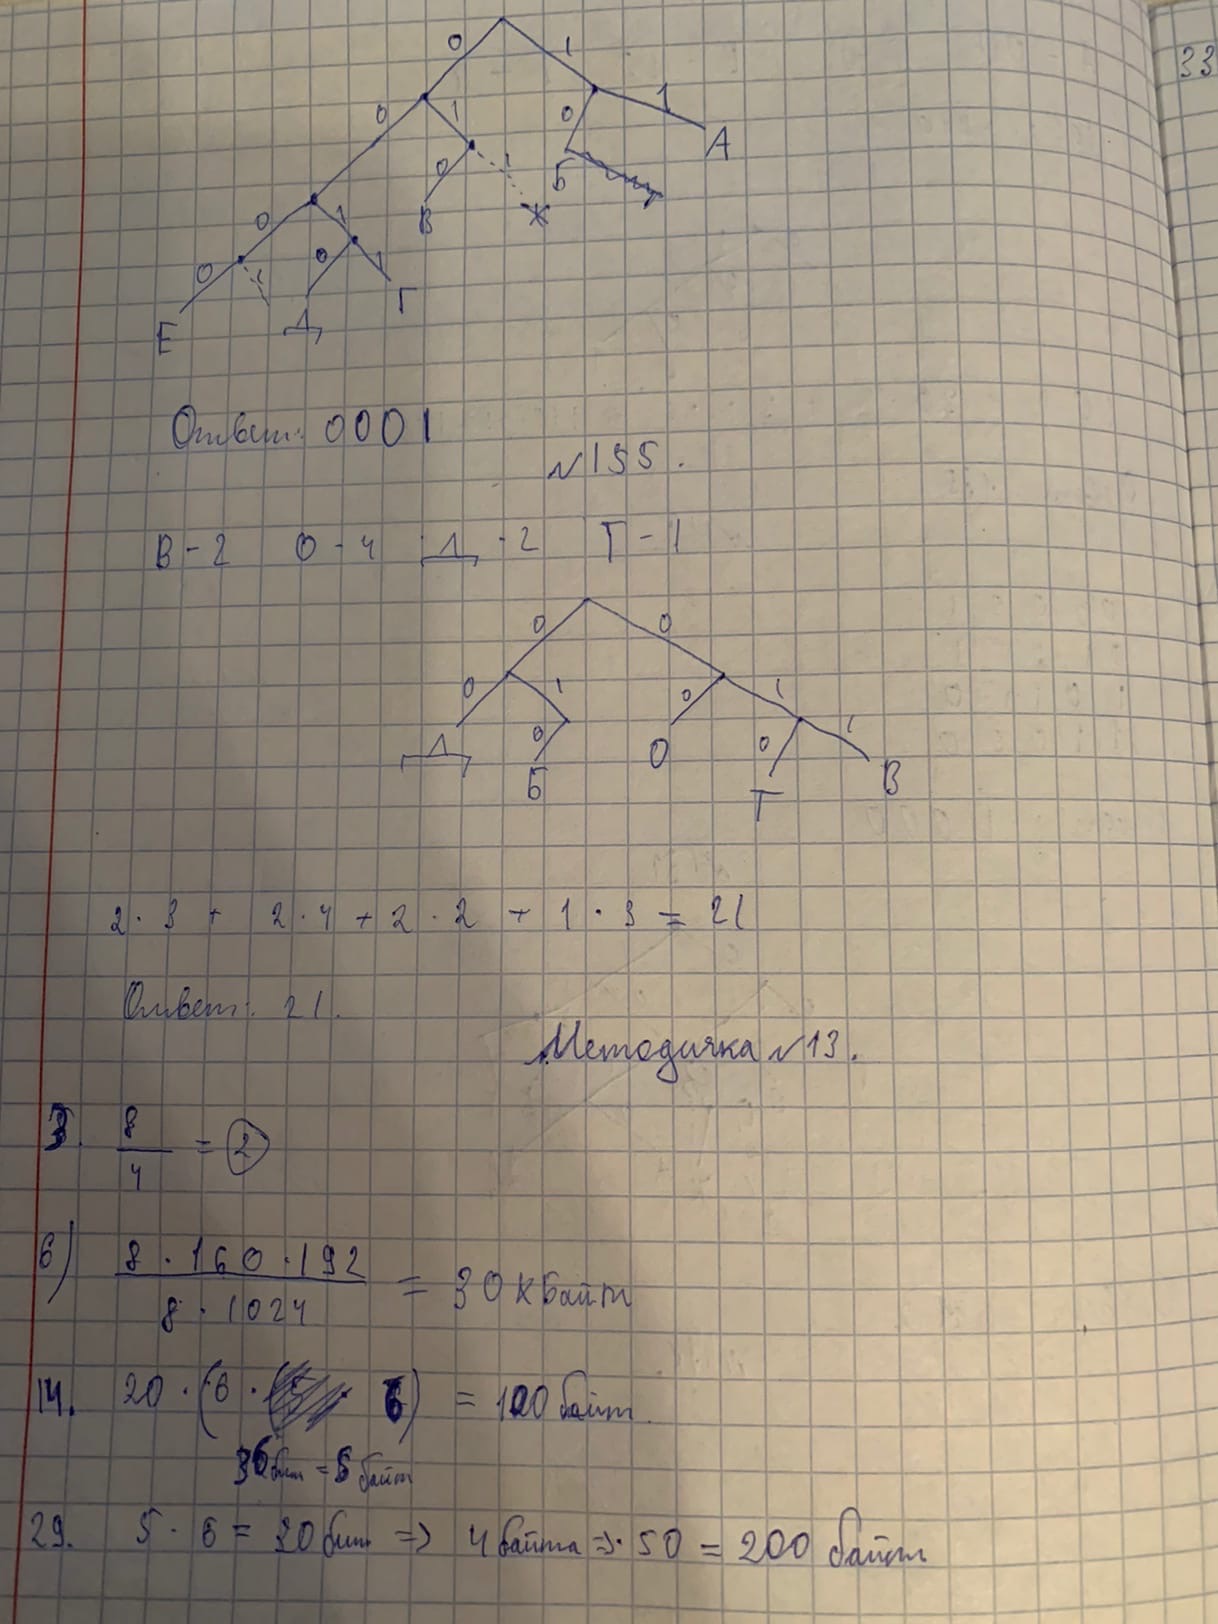 33
0 1
0 1 0 1
А
0 1 0 1 Б
В Ж
0 1
0 1 0 1
Е Д Г
Ответ: 0001
№195.
В - 2 О - 4 Д - 2 Т - 1
0 0
0 1 0 1
0 0 1
Д Б О Т В
2 · 3 + 2 · 4 + 2 · 2 + 1 · 3 = 21
Ответ: 21.
Методичка №13.
3. 8/4 = 2
6) 8 · 160 · 192 / 8 · 1024 = 30 Кбайт
14. 20 · (6 · 6) = 100 байт.
36 бит = 5 байт
29. 5 · 6 = 30 бит => 4 байта => · 50 = 200 байт